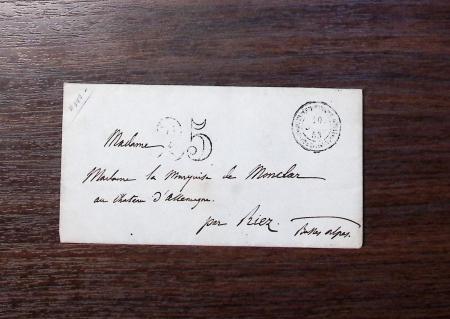 Madame
25
Madame la Marquise de Monclar
au chateau d'Allemagne.
par Riez
Basses alpes.